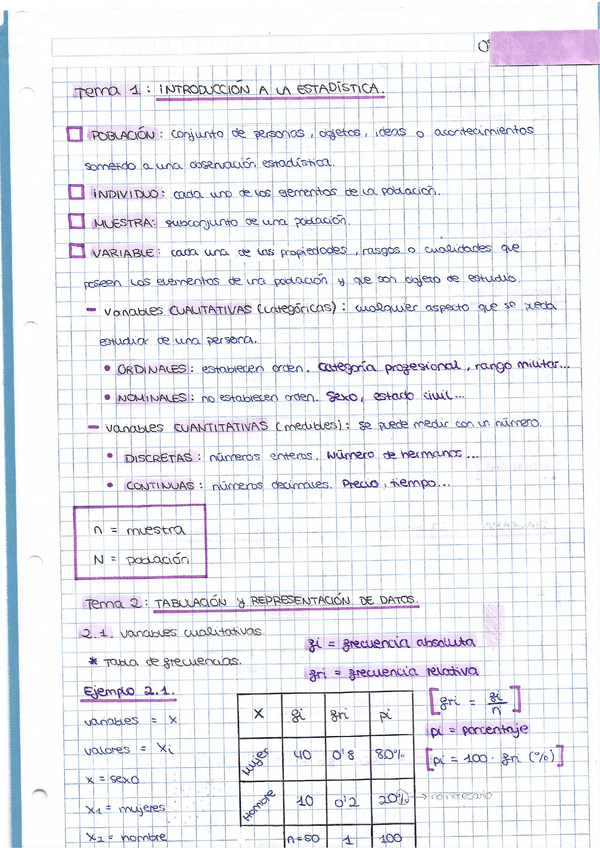 Tema 1: INTRODUCCIÓN A LA ESTADÍSTICA.
POBLACIÓN: conjunto de personas, objetos, ideas o acontecimientos
sometido a una observación estadística.
INDIVIDUO: cada uno de los elementos de la población.
MUESTRA: subconjunto de una población.
VARIABLE: cada una de las propiedades, rasgos o cualidades que
poseen los elementos de una población y que son objeto de estudio.
- Variables CUALITATIVAS (categóricas): cualquier aspecto que se pueda
estudiar de una persona.
• ORDINALES: establecen orden. Categoría profesional, rango militar...
• NOMINALES: no establecen orden. Sexo, estado civil...
- Variables CUANTITATIVAS (medibles): se puede medir con un número.
• DISCRETAS: números enteros. Número de hermanos...
• CONTINUAS: números decimales. Precio, tiempo...
n = muestra
N = población
Tema 2: TABULACIÓN Y REPRESENTACIÓN DE DATOS.
2.1. Variables cualitativas
fi = frecuencia absoluta
* Tabla de frecuencias.
fri = frecuencia relativa
Ejemplo 2.1.
variables = X
valores = Xi
x = sexo
X1 = mujeres
X2 = hombre
X fi fri pi
Mujer 40 0'8 80%
Hombre 10 0'2 20% → no necesario
n=50 1 100
[fri = fi/n]
pi = porcentaje
[pi = 100 · fri (%)]